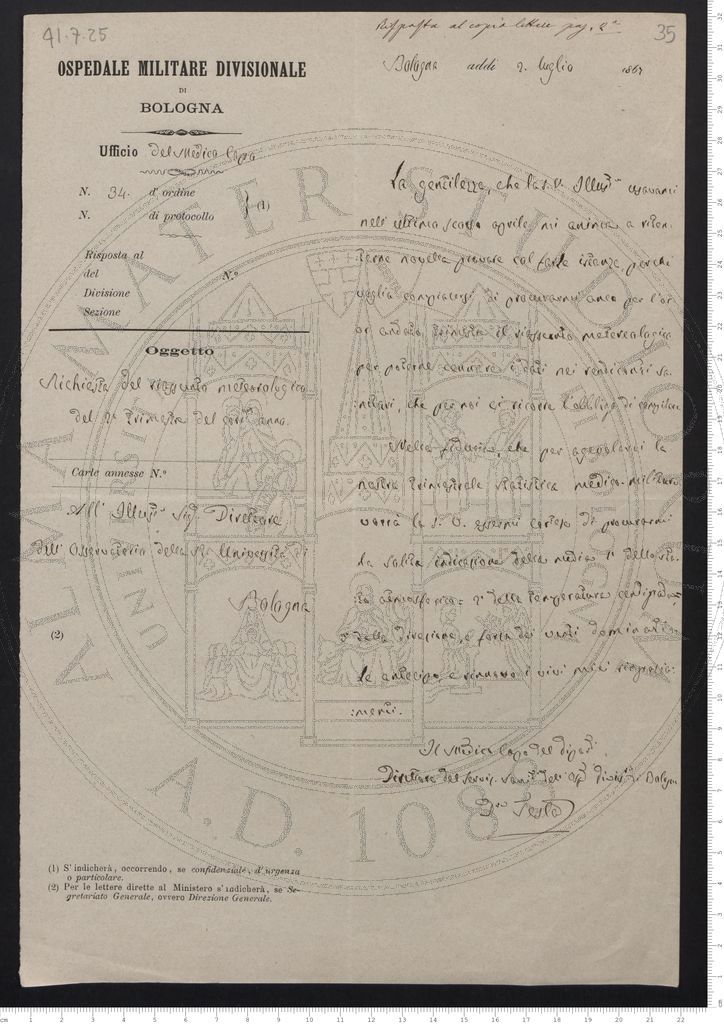 41.7.25
Risposta al copia lettere pag. 2ª
35
OSPEDALE MILITARE DIVISIONALE
DI
BOLOGNA
Bologna addì 2. luglio 1867
Ufficio del Medico Capo
N. 34. d'ordine
N. di protocollo
(1)
Risposta al
del
Divisione
Sezione
N.º
Oggetto
Richiesta del riassunto meteorologico
del 2º trimestre del corrte anno.
Carte annesse N.º
All' Illustr. Sigr Direttore
dell' Osservatorio della R. Università di
Bologna
(2)
La gentilezza, che la S. V. Illustr. usavami
nell' ultimo scorso aprile mi anima a
novella preghiera perché
voglia compiacersi di procurarmi anco per l'or
or andato trimestre il riassunto metereologico
per poterne i dati nei rendiconti sa-
nitari, che per noi ci ricorre l'obbligo di compilare.
Nella fiducia, che per agevolarci la
nostra trimestrale statistica medico-militare
vorrà la S. V. essermi cortese di procurarmi
la solita indicazione della media 1º dello sta-
to atmosferico = 2º della temperatura centigrada =
3º della direzione, e forza dei venti dominanti
le anticipo, e rinnovo i vivi miei ringrazia-
:menti.
Il Medico Capo del
Direttore del Servizio Sanit. dell' Osp. divis. di Bologna
Dre Testa
(1) S'indicherà, occorrendo, se confidenziale, d'urgenza
o particolare.
(2) Per le lettere dirette al Ministero s'indicherà, se Se-
gretariato Generale, ovvero Direzione Generale.
ALMA MATER STUDIORUM
A.D. 1088